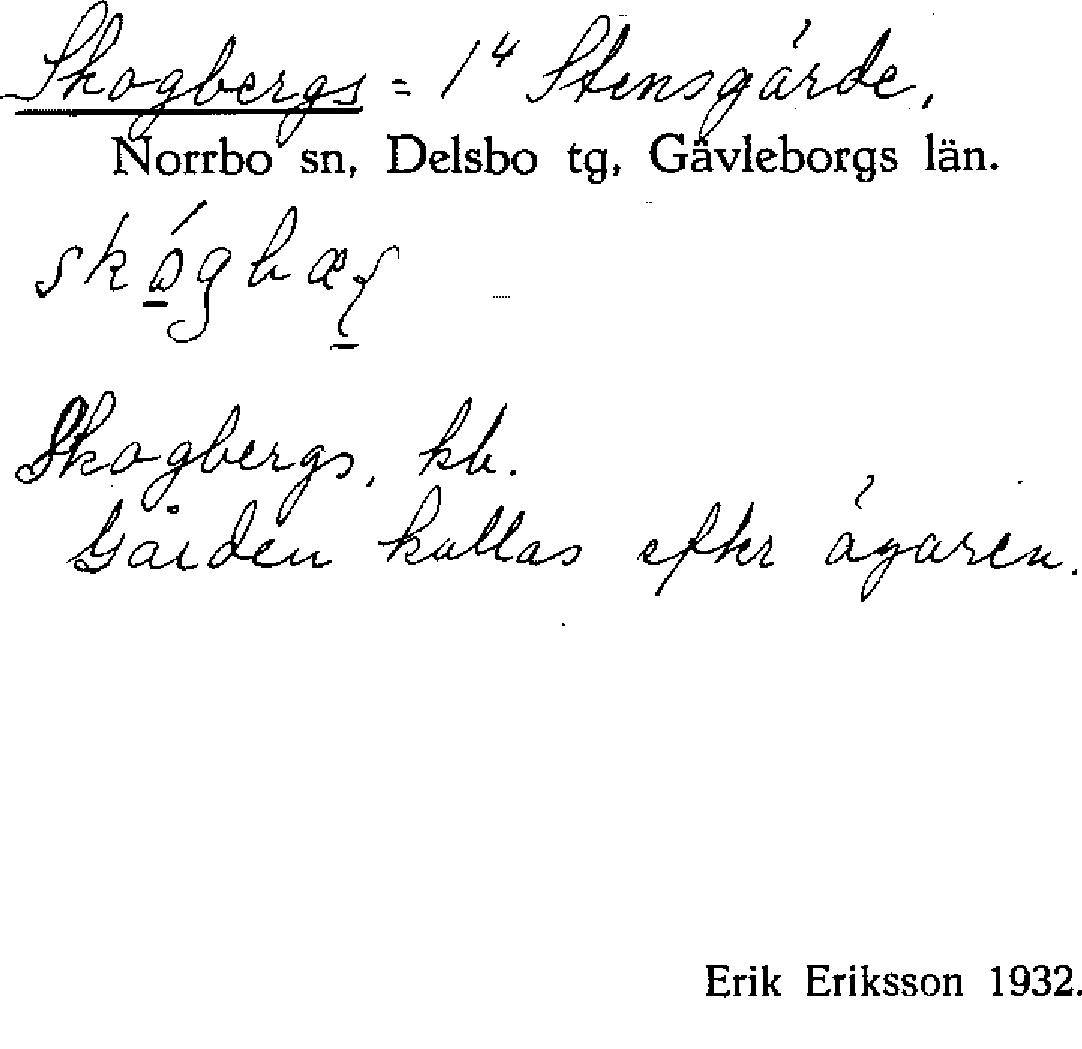 Skogbergs = 1⁴ Stensgärde,
Norrbo sn, Delsbo tg, Gävleborgs län.
Skogbergs, kb.
Gården kallas efter ägaren.
Erik Eriksson 1932.